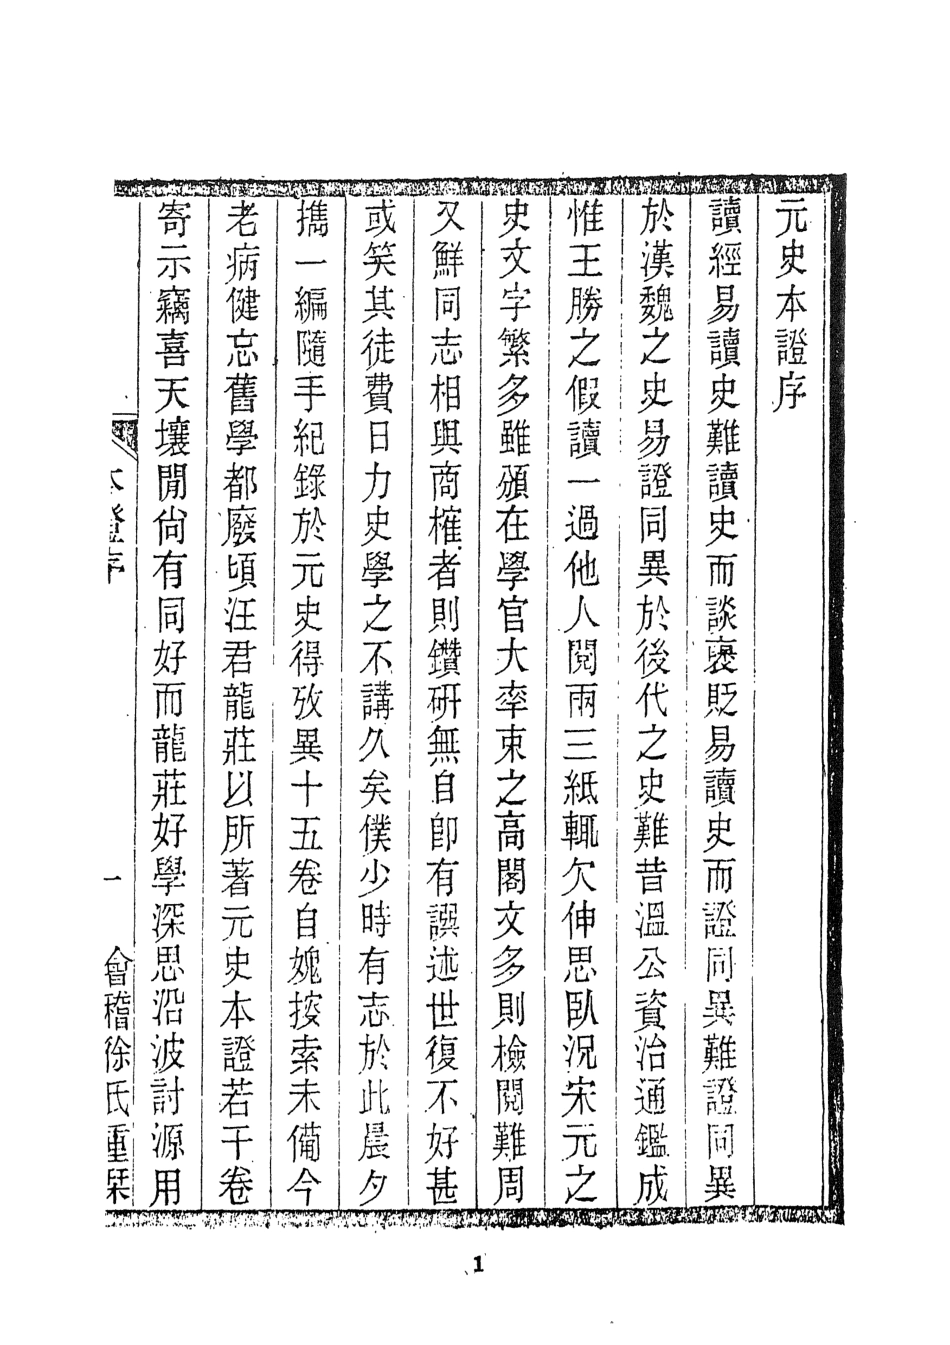 元史本證序
讀經易讀史難讀史而談襃貶易讀史而證同異難證同異
於漢魏之史易證同異於後代之史難昔溫公資治通鑑成
惟王勝之假讀一過他人閱兩三紙輒欠伸思臥況宋元之
史文字繁多雖頒在學官大率束之高閣文多則檢閱難周
又鮮同志相與商榷者則鑽研無自卽有譔述世復不好甚
或笑其徒費日力史學之不講久矣僕少時有志於此晨夕
擕一編隨手紀錄於元史得攷異十五卷自媿搜索未備今
老病健忘舊學都廢頃汪君龍莊以所著元史本證若干卷
寄示竊喜天壤閒尙有同好而龍莊好學深思沿波討源用
本證序
一
會稽徐氏重栞
1